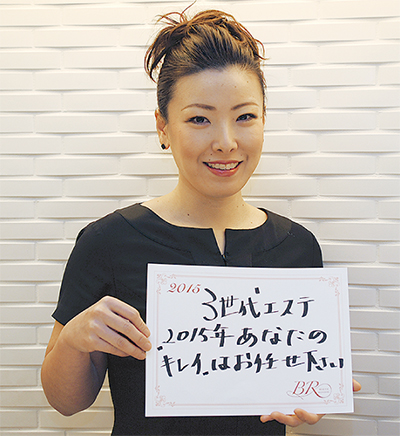 2015
3世代エステ
2015年あなたの
キレイはお任せ下さい
BR